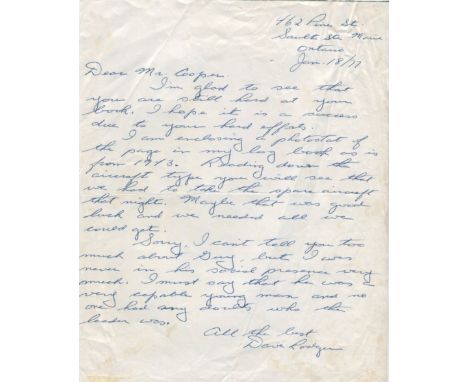 462 Pine St.
Sault Ste Marie
Ontario
Jan. 18/77
Dear Mr Cooper.
I'm glad to see that
you are still hard at your
book. I hope it is a success
due to your hard efforts.
I am enclosing a photostat of
the page in my log book as is
from 1943. Reading down the
aircraft type you will see that
we had to take the spare aircraft
that night. Maybe that was good
luck and we needed all we
could get.
Sorry, I can't tell you too
much about Guy, but I was
never in his social presence very
much. I must say that he was a
very capable young man and no
one had any doubts who the
leader was.
All the best
Dave Rodger